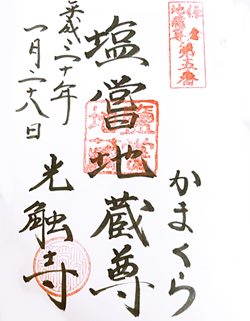 鎌倉
地蔵尊第五番
かまくら
塩嘗地蔵尊
光触寺
平成三十年
一月二十八日